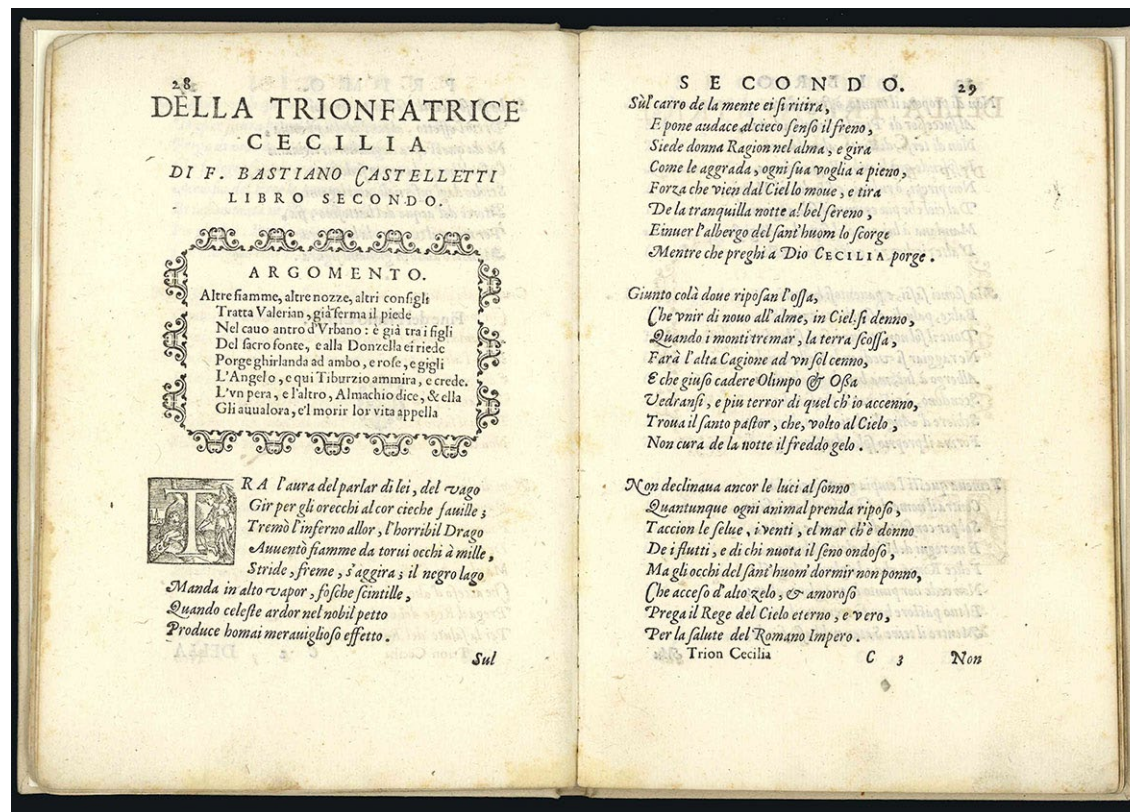 28
DELLA TRIONFATRICE
CECILIA
DI F. BASTIANO CASTELLETTI
LIBRO SECONDO.
ARGOMENTO.
Altre fiamme, altre nozze, altri consigli
Tratta Valerian, già ferma il piede
Nel cauo antro d'Vrbano: è già tra i figli
Del sacro fonte, e alla Donzella ei riede
Porge ghirlanda ad ambo, e rose, e gigli
L'Angelo, e qui Tiburzio ammira, e crede.
L'vn pera, e l'altro, Almachio dice, & ella
Gli aualora, e'l morir lor vita appella
TRA l'aura del parlar di lei, del vago
Gir per gli orecchi al cor cieche fauille;
Tremò l'inferno allor, l'horribil Drago
Auuentò fiamme da torui occhi à mille,
Stride, freme, s'aggira; il negro lago
Manda in alto vapor, fosche scintille,
Quando celeste ardor nel nobil petto
Produce homai merauiglioso effetto.
Sul
SECONDO. 29
Sùl carro de la mente ei si ritira,
E pone audace al cieco senso il freno,
Siede donna Ragion nel alma, e gira
Come le aggrada, ogni sua voglia à pieno,
Forza che vien dal Ciel lo moue, e tira
De la tranquilla notte al bel sereno,
Einuer l'albergo del sant'huom lo scorge
Mentre che preghi a Dio CECILIA porge.
Giunto colà doue riposan l'ossa,
Che vnir di nouo all'alme, in Ciel si denno,
Quando i monti tremar, la terra scossa,
Farà l'alta Cagione ad vn sol cenno,
E che giuso cadere Olimpo & Ossa
Vedransi, e piu terror di quel ch'io accenno,
Troua il santo pastor, che, volto al Cielo,
Non cura de la notte il freddo gelo.
Non declinaua ancor le luci al sonno
Quantunque ogni animal prenda riposo,
Taccion le selue, i venti, el mar ch'è donno
De i flutti, e di chi nuota il seno ondoso,
Ma gli occhi del sant'huom' dormir non ponno,
Che acceso d'alto zelo, & amoroso
Prega il Rege del Cielo eterno, e vero,
Per la salute del Romano Impero.
Trion Cecilia C 3 Non